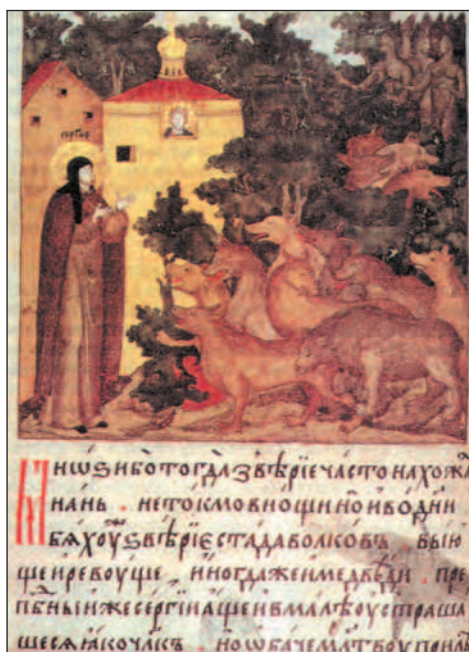 Мнѡѕибѡтогдазвѣріечастонахожа
нань . нетокмовнощинѡиводни
бѧхоуѕвѣріестадаволковъ . выю
щеиревоуще . иногдажеимедвѣди . пре
пбныижесергіиащеивмалѣоустраша
шесѧꙗкочлкъ . ноѡбачемлтвоуприлѣ